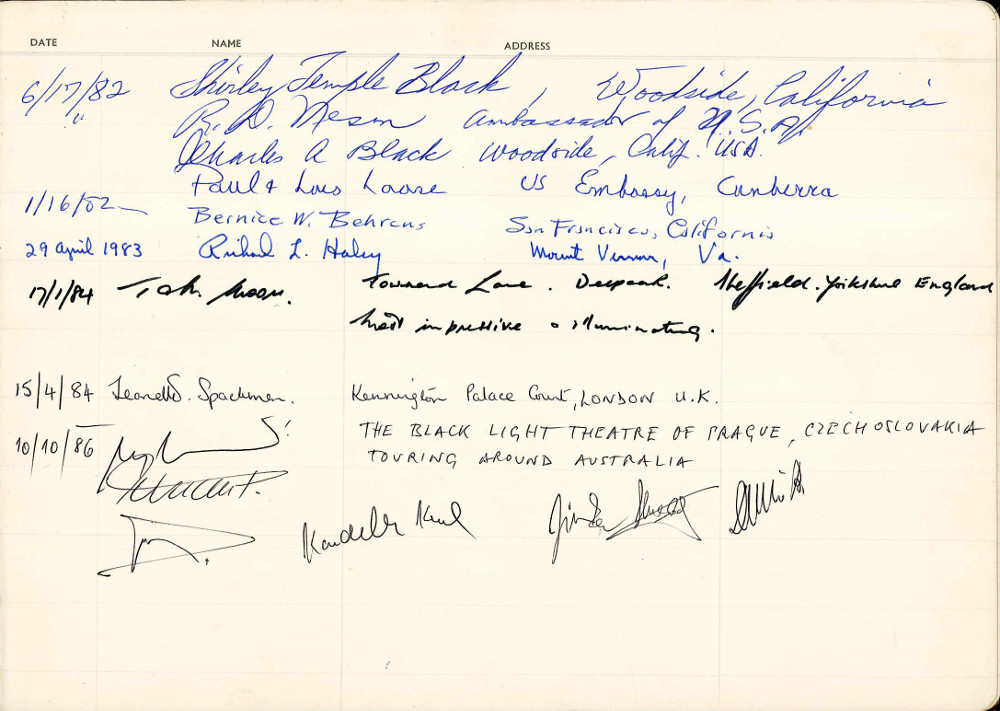 DATE NAME ADDRESS
6/17/82 Shirley Temple Black, Woodside, California
" R. D. Nesen Ambassador of U.S.A.
Charles A Black Woodside, Calif. USA.
Paul & Lois Laase US Embassy, Canberra
1/16/82 Bernice W. Behrens San Francisco, California
29 April 1983 Richard L. Haley Mount Vernon, Va.
17/1/84 Townend Lane. Deepcar. Sheffield. Yorkshire England
most impressive & illuminating.
15/4/84 Kennington Palace Court, LONDON U.K.
10/10/86 THE BLACK LIGHT THEATRE OF PRAGUE, CZECHOSLOVAKIA
TOURING AROUND AUSTRALIA